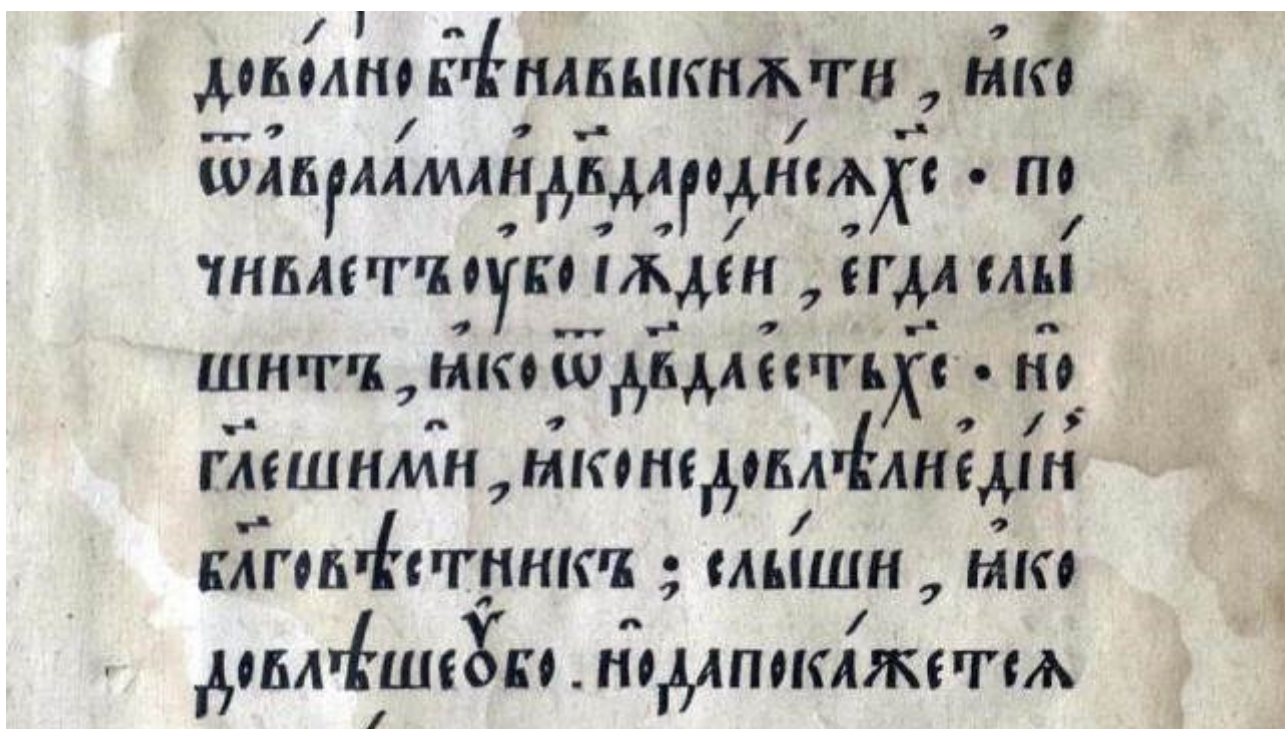 дово́лно бѣ̑ навыкнѫти , ꙗ҆́ко
ѿ а҆враа́ма и҆ дв҃да роди́сѧ х҃с · по
чиваетъ оу҆бо і҆ѫ҆де́и , е҆гда слы́
шитъ , ꙗ҆́ко ѿ дв҃да е҆́сть х҃с · но̑
гл҃еши ми̑ , ꙗ҆́ко не довлѣ́ли е҆ді́н̾
бл҃говѣстникъ ; слы́ши , ꙗ҆́ко
довлѣ́ше ꙋ҆̑бо . но̑ да пока́жетсѧ